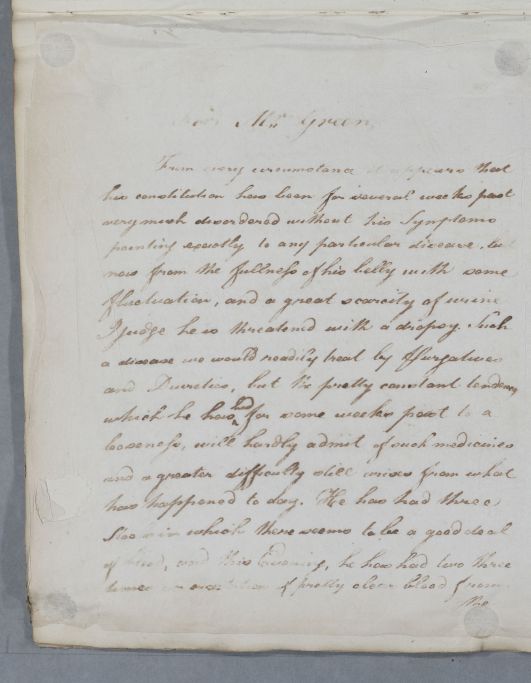 Mr. Green
From every circumstance it appears that
his constitution has been for several weeks past
very much disordered without his Symptoms
pointing exactly to any particular disease, but
now from the fullness of his belly with some
fluctuation, and a great scarcity of urine
I judge he is threatened with a dropsy. Such
a disease we would readily treat by Purgatives
and Diuretics, but the pretty constant tendency
which he has had for some weeks past to a
looseness, will hardly admit of such medicines
and a greater difficulty still arises from what
has happened to day. He has had three
Stools in which there seems to be a good deal
of blood, and this Evening, he has had two three
times an of pretty clear blood from
the